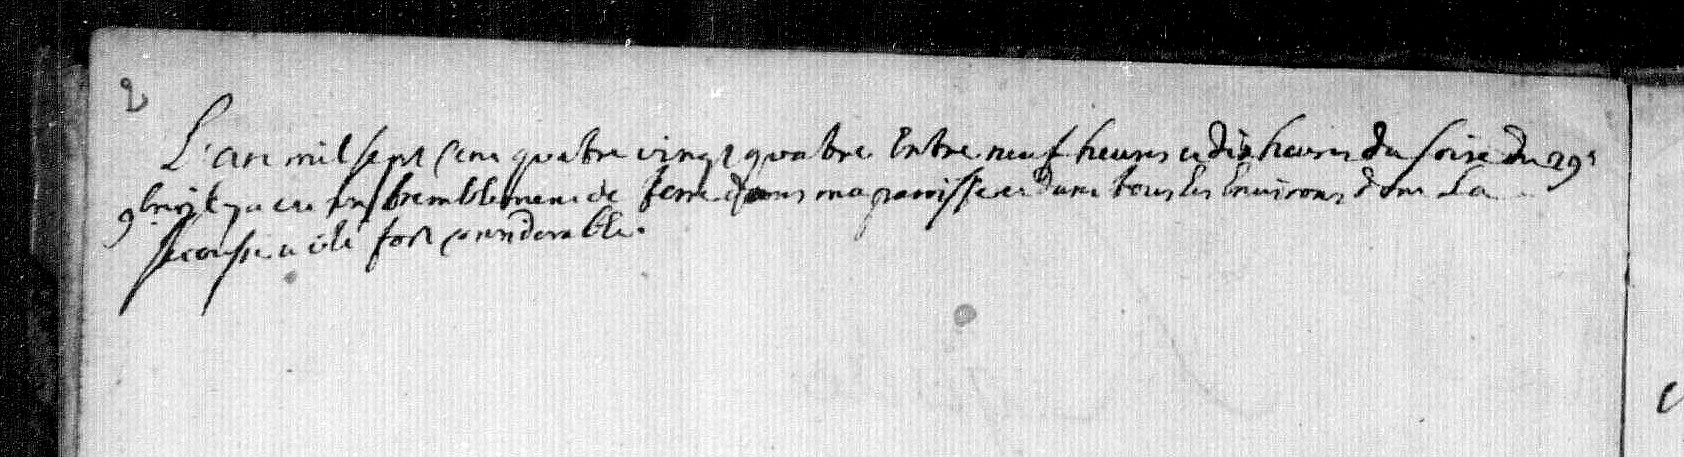 2
L'an mil sept cent quatre vingt quatre Entre neuf heures et dix heures du soire du 29e
9bre il y a eu un tremblement de terre dans ma paroisse et dans tous les Environs dont La
secousse a été fort considerable.